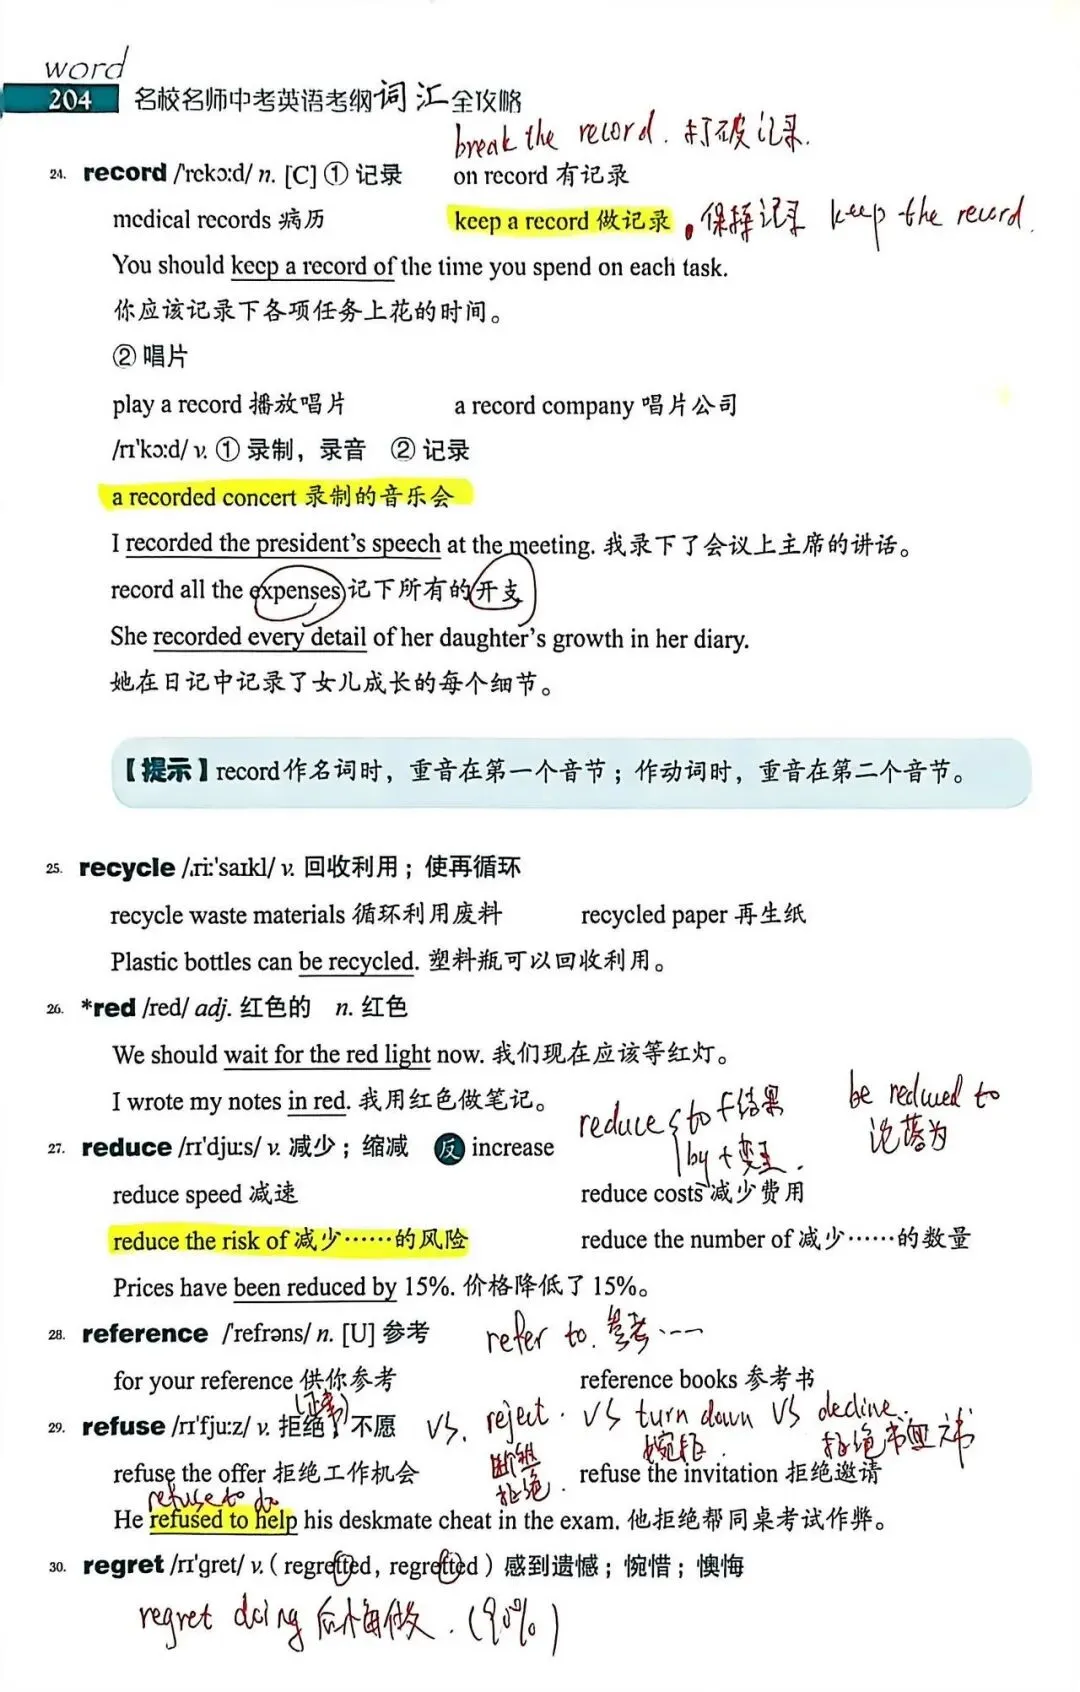 word
204 名校名师中考英语考纲词汇全攻略
break the record. 打破记录.
24. record /'rekɔ:d/ n. [C] ① 记录 on record 有记录
medical records 病历 keep a record 做记录 保持记录 keep the record.
You should keep a record of the time you spend on each task.
你应该记录下各项任务上花的时间。
② 唱片
play a record 播放唱片 a record company 唱片公司
/rɪ'kɔ:d/ v. ① 录制，录音 ② 记录
a recorded concert 录制的音乐会
I recorded the president's speech at the meeting. 我录下了会议上主席的讲话。
record all the expenses 记下所有的开支
She recorded every detail of her daughter's growth in her diary.
她在日记中记录了女儿成长的每个细节。
【提示】record作名词时，重音在第一个音节；作动词时，重音在第二个音节。
25. recycle /ˌri:'saɪkl/ v. 回收利用；使再循环
recycle waste materials 循环利用废料 recycled paper 再生纸
Plastic bottles can be recycled. 塑料瓶可以回收利用。
26. *red /red/ adj. 红色的 n. 红色
We should wait for the red light now. 我们现在应该等红灯。
I wrote my notes in red. 我用红色做笔记。
reduce to+结果 be reduced to
by+变量. 沦落为
27. reduce /rɪ'dju:s/ v. 减少；缩减 反 increase
reduce speed 减速 reduce costs 减少费用
reduce the risk of 减少……的风险 reduce the number of 减少……的数量
Prices have been reduced by 15%. 价格降低了 15%。
28. reference /'refrəns/ n. [U] 参考 refer to. 参考……
for your reference 供你参考 reference books 参考书
29. refuse /rɪ'fju:z/ v. 拒绝；不愿 vs. reject. vs turn down vs decline.
婉拒.
refuse the offer 拒绝工作机会 拒绝. refuse the invitation 拒绝邀请
refuse to do
He refused to help his deskmate cheat in the exam. 他拒绝帮同桌考试作弊。
30. regret /rɪ'gret/ v.（regretted, regretted）感到遗憾；惋惜；懊悔
regret doing 后悔做. (90%)